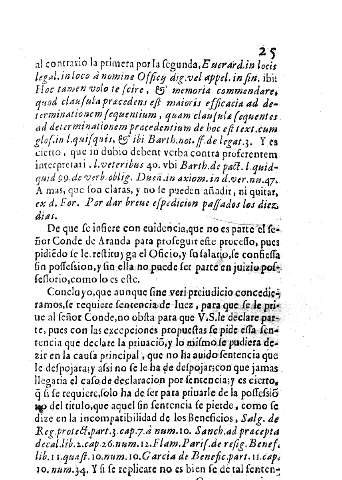 25
al contrario la primera por la segunda, Euerard. in locis
legal. in loco à nomine Officij dig. vel appel. in fin. ibi:
Hoc tamen volo te scire, & memoria commendare,
quod clausula præcedens est maioris efficacia ad de-
terminationem sequentium, quam clausulæ sequentes
ad determinationem præcedentium de hoc est text. cum
glos. in l. quisquis, & ibi Barth. not. ff. de legat. 3. Y es
cierto, que in dubio debent verba contra proferentem
interpretari. l. veteribus 40. vbi Barth. de pact. l. quid-
quid 99. de verb. oblig. Duen. in axiom. in d. ver. nu. 47.
A mas, que son claras, y no se pueden añadir, ni quitar,
ex d. For. Por dar breue espedicion passados los diez
dias.
De que se infiere con euidencia, que no es parte el se-
ñor Conde de Aranda para proseguir este processo, pues
pidiẽdo se le restituyga el Oficio, y su salario, se confiessa
sin possession, y sin ella no puede ser parte en juizio pos-
sessorio, como lo es este.
Concluyo, que aunque sine veri preiudicio concedie-
ramos, se requiere sentencia de Iuez, para que se le pri-
ue al señor Conde, no obsta para que V.S. le declare par-
te, pues con las excepciones propuestas se pide essa sen-
tencia que declare la priuaciõ, y lo mismo se pudiera de-
zir en la causa principal, que no ha auido sentencia que
le despojara; y assi no se le ha de despojar; con que jamas
llegaria el caso de declaracion por sentencia; y es cierto,
q̃ si se requiere, solo ha de ser para priuarle de la possessiõ
no del titulo, que aquel sin sentencia se pierde, como se
dize en la incompatibilidad de los Beneficios, Salg. de
Reg. protect. part. 3. cap. 7. à num. 10. Sanch. ad præcepta
decal. lib. 2. cap. 26. num. 12. Flam. Paris. de resig. Benef.
lib. 11. quæst. 10. num. 10. Garcia de Benefic. part. 11. cap.
10. num. 34. Y si se replicare no es bien se de tal senten-